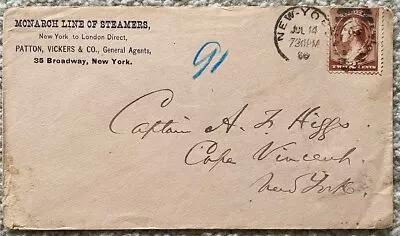 MONARCH LINE OF STEAMERS,
New York to London Direct,
PATTON, VICKERS & CO., General Agents,
35 Broadway, New York.
91
NEW-YORK
JUL 14
730PM
TWO CENTS
Captain A. F. Higgs
Cape Vincent
New York